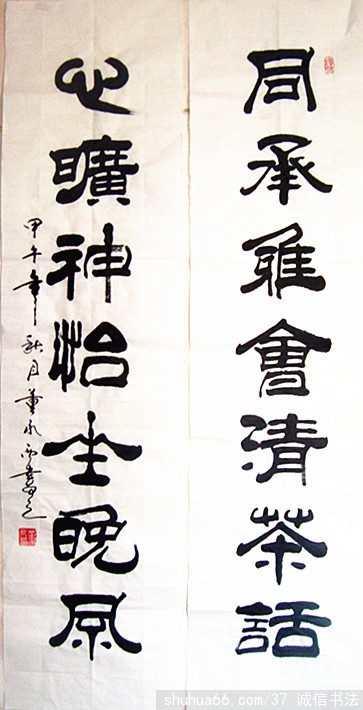 同承雅會清茶話
心曠神怡坐晚風
甲午年秋月董永書
shuhua66.com/37 诚信书法